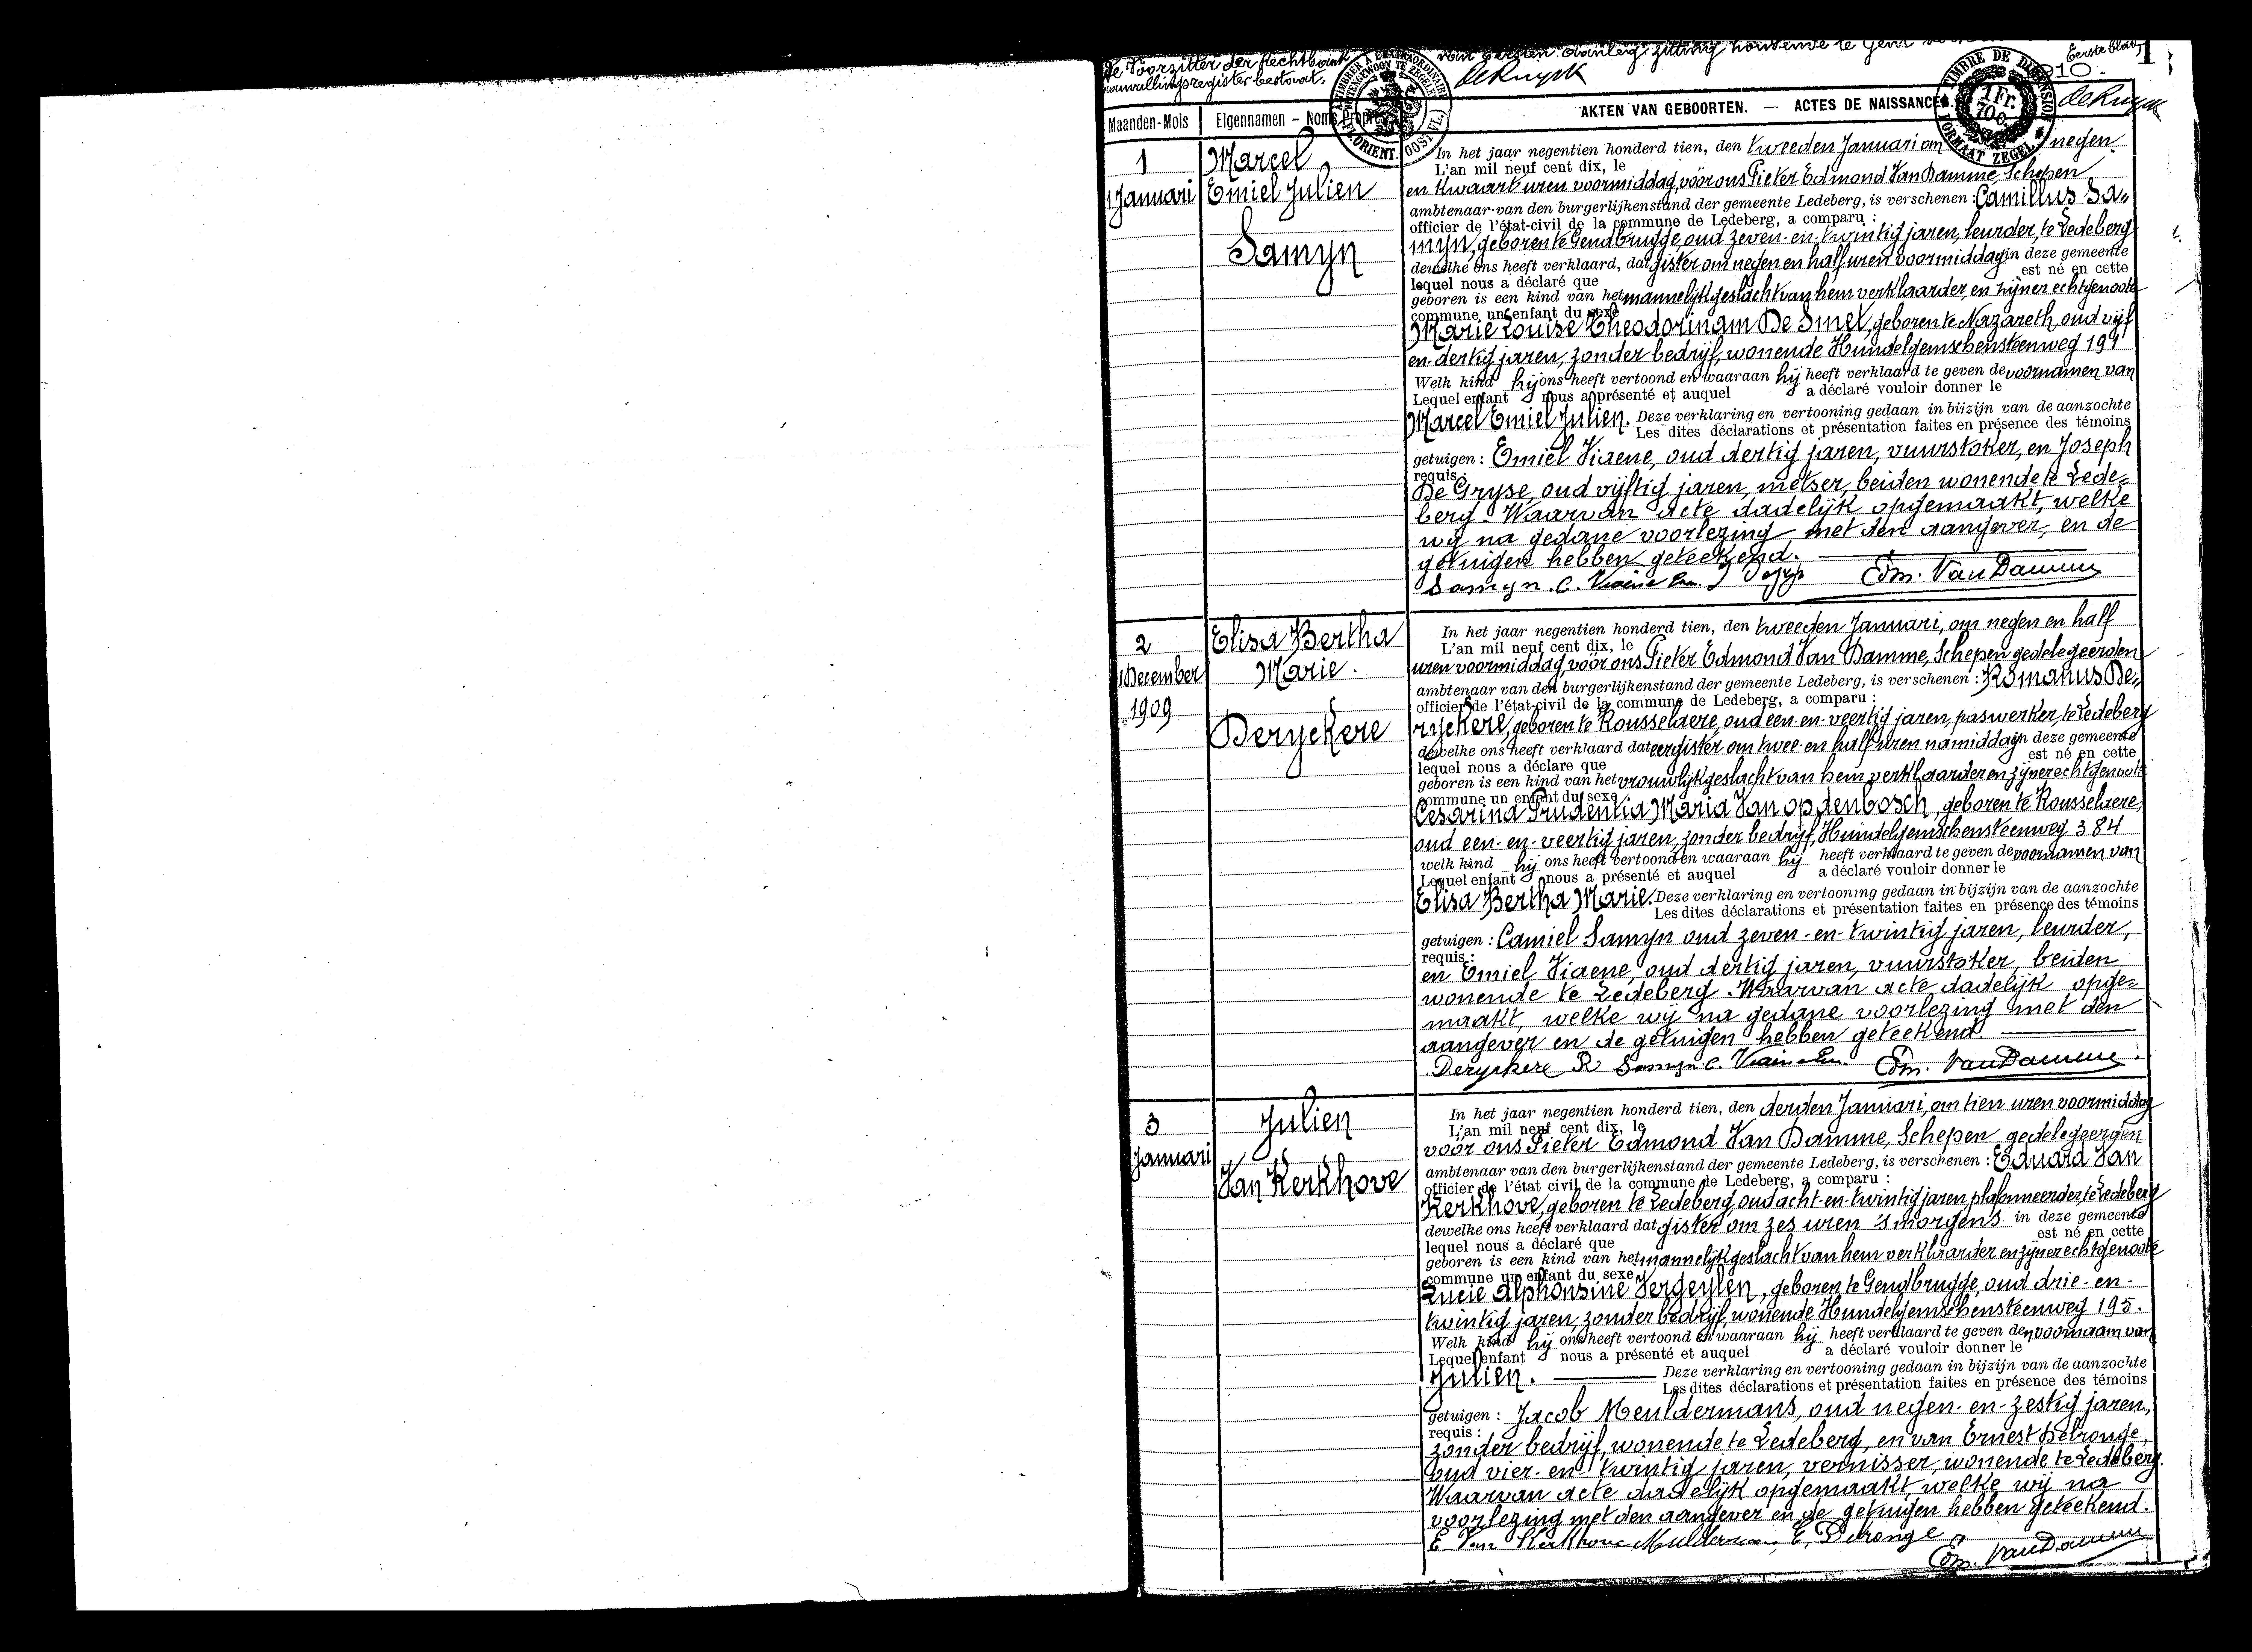 de Voorzitter der Rechtbank van Eersten Aanleg zitting houdende te Gent
aanvullingsregister bestaat. deRuyck
Eerste blad, 1
910. deRuyck
TIMBRE DE DIMENSION
1 Fr. 70 C.
FORMAAT ZEGEL
Maanden-Mois Eigennamen - Noms Propres AKTEN VAN GEBOORTEN. — ACTES DE NAISSANCES.
1
1 Januari
Marcel
Emiel Julien
Samyn
In het jaar negentien honderd tien, den tweeden Januari om negen
L'an mil neuf cent dix, le
en kwaart uren voormiddag, vóór ons Pieter Edmond Van Damme, Schepen
ambtenaar van den burgerlijkenstand der gemeente Ledeberg, is verschenen : Camillus Sa„
officier de l'état-civil de la commune de Ledeberg, a comparu :
myn, geboren te Gendbrugge, oud zeven-en-twintig jaren, leurder, te Ledeberg
dewelke ons heeft verklaard, dat gister om negen en half uren voormiddag in deze gemeente
lequel nous a déclaré que est né en cette
geboren is een kind van het mannelijk geslacht van hem verklaarder, en zijner echtgenoote
commune un enfant du sexe
Marie Louise Theodorina De Smet, geboren te Nazareth, oud vijf
en-dertig jaren, zonder bedrijf, wonende Hundelgemschensteenweg 191
Welk kind hij ons heeft vertoond en waaraan hij heeft verklaard te geven de voornamen van
Lequel enfant nous a présenté et auquel a déclaré vouloir donner le
Marcel Emiel Julien. Deze verklaring en vertooning gedaan in bijzijn van de aanzochte
Les dites déclarations et présentation faites en présence des témoins
getuigen : Emiel Viaene, oud dertig jaren, vuurstoker, en Joseph
requis :
De Gryse, oud vijftig jaren, metser, beiden wonende te Lede=
berg. Waarvan acte dadelijk opgemaakt, welke
wij na gedane voorlezing met den aangever, en de
getuigen hebben geteekend.
Samyn. C. Viaene Em. Edm. Van Damme
2
1 December
1909
Elisa Bertha
Marie.
Deryckere
In het jaar negentien honderd tien, den tweeden Januari, om negen en half
L'an mil neuf cent dix, le
uren voormiddag, vóór ons Pieter Edmond Van Damme, Schepen gedelegeerden
ambtenaar van den burgerlijkenstand der gemeente Ledeberg, is verschenen : Romanus De„
officier de l'état-civil de la commune de Ledeberg, a comparu :
ryckere, geboren te Rousselaere, oud een-en-veertig jaren, paswerker, te Ledeberg
dewelke ons heeft verklaard dat eergister om twee-en half uren namiddag in deze gemeente
lequel nous a déclare que est né en cette
geboren is een kind van het vrouwlijk geslacht van hem verklaarder en zijner echtgenoote
commune un enfant du sexe
Cesarina Prudentia Maria Van opdenbosch, geboren te Rousselaere,
oud een-en-veertig jaren, zonder bedrijf, Hundelgemschensteenweg 384
welk kind hij ons heeft vertoond en waaraan hij heeft verklaard te geven de voornamen van
Lequel enfant nous a présenté et auquel a déclaré vouloir donner le
Elisa Bertha Marie. Deze verklaring en vertooning gedaan in bijzijn van de aanzochte
Les dites déclarations et présentation faites en présence des témoins
getuigen : Camiel Samyn oud zeven-en-twintig jaren, leurder,
requis :
en Emiel Viaene, oud dertig jaren, vuurstoker, beiden
wonende te Ledeberg. Waarvan acte dadelijk opge=
maakt, welke wij na gedane voorlezing met den
aangever en de getuigen hebben geteekend.
Deryckere R Samyn. C. Viaene Em. Edm. Van Damme.
3
Januari
Julien
Van Kerkhove
In het jaar negentien honderd tien, den derden Januari, om tien uren voormiddag
L'an mil neuf cent dix, le
vóór ons Pieter Edmond Van Damme, Schepen gedelegeerden
ambtenaar van den burgerlijkenstand der gemeente Ledeberg, is verschenen : Eduard Van
officier de l'état civil de la commune de Ledeberg, a comparu :
Kerkhove, geboren te Ledeberg, oud acht-en-twintig jaren, plafonneerder, te Ledeberg
dewelke ons heeft verklaard dat gister om zes uren 's morgens in deze gemeente
lequel nous a déclaré que est né en cette
geboren is een kind van het mannelijk geslacht van hem verklaarder en zijner echtgenoote
commune un enfant du sexe
Lucie Alphonsine Vergeylen, geboren te Gendbrugge, oud drie-en-
twintig jaren, zonder bedrijf, wonende Hundelgemschensteenweg 195.
Welk kind hij ons heeft vertoond en waaraan hij heeft verklaard te geven den voornaam van
Lequel enfant nous a présenté et auquel a déclaré vouloir donner le
Julien. Deze verklaring en vertooning gedaan in bijzijn van de aanzochte
Les dites déclarations et présentation faites en présence des témoins
getuigen : Jacob Meuldermans, oud negen-en-zestig jaren,
requis :
zonder bedrijf, wonende te Ledeberg, en van Ernest Delronge,
oud vier-en-twintig jaren, vernisser, wonende te Ledeberg.
Waarvan acte dadelijk opgemaakt welke wij na
voorlezing met den aangever en de getuigen hebben geteekend.
E Van Kerkhove E. Delronge
Edm. Van Damme